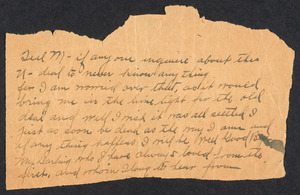 Tell M- if anyone inquire about this
N- deal to never know anything
for I am worried over that, as it would
bring me in the lime light for the old
deal and well I wish it was all settled I
just as soon be dead as the way I am and
if any thing happens I will be
my darling who I have always loved from the
first, and whom I long to hear from